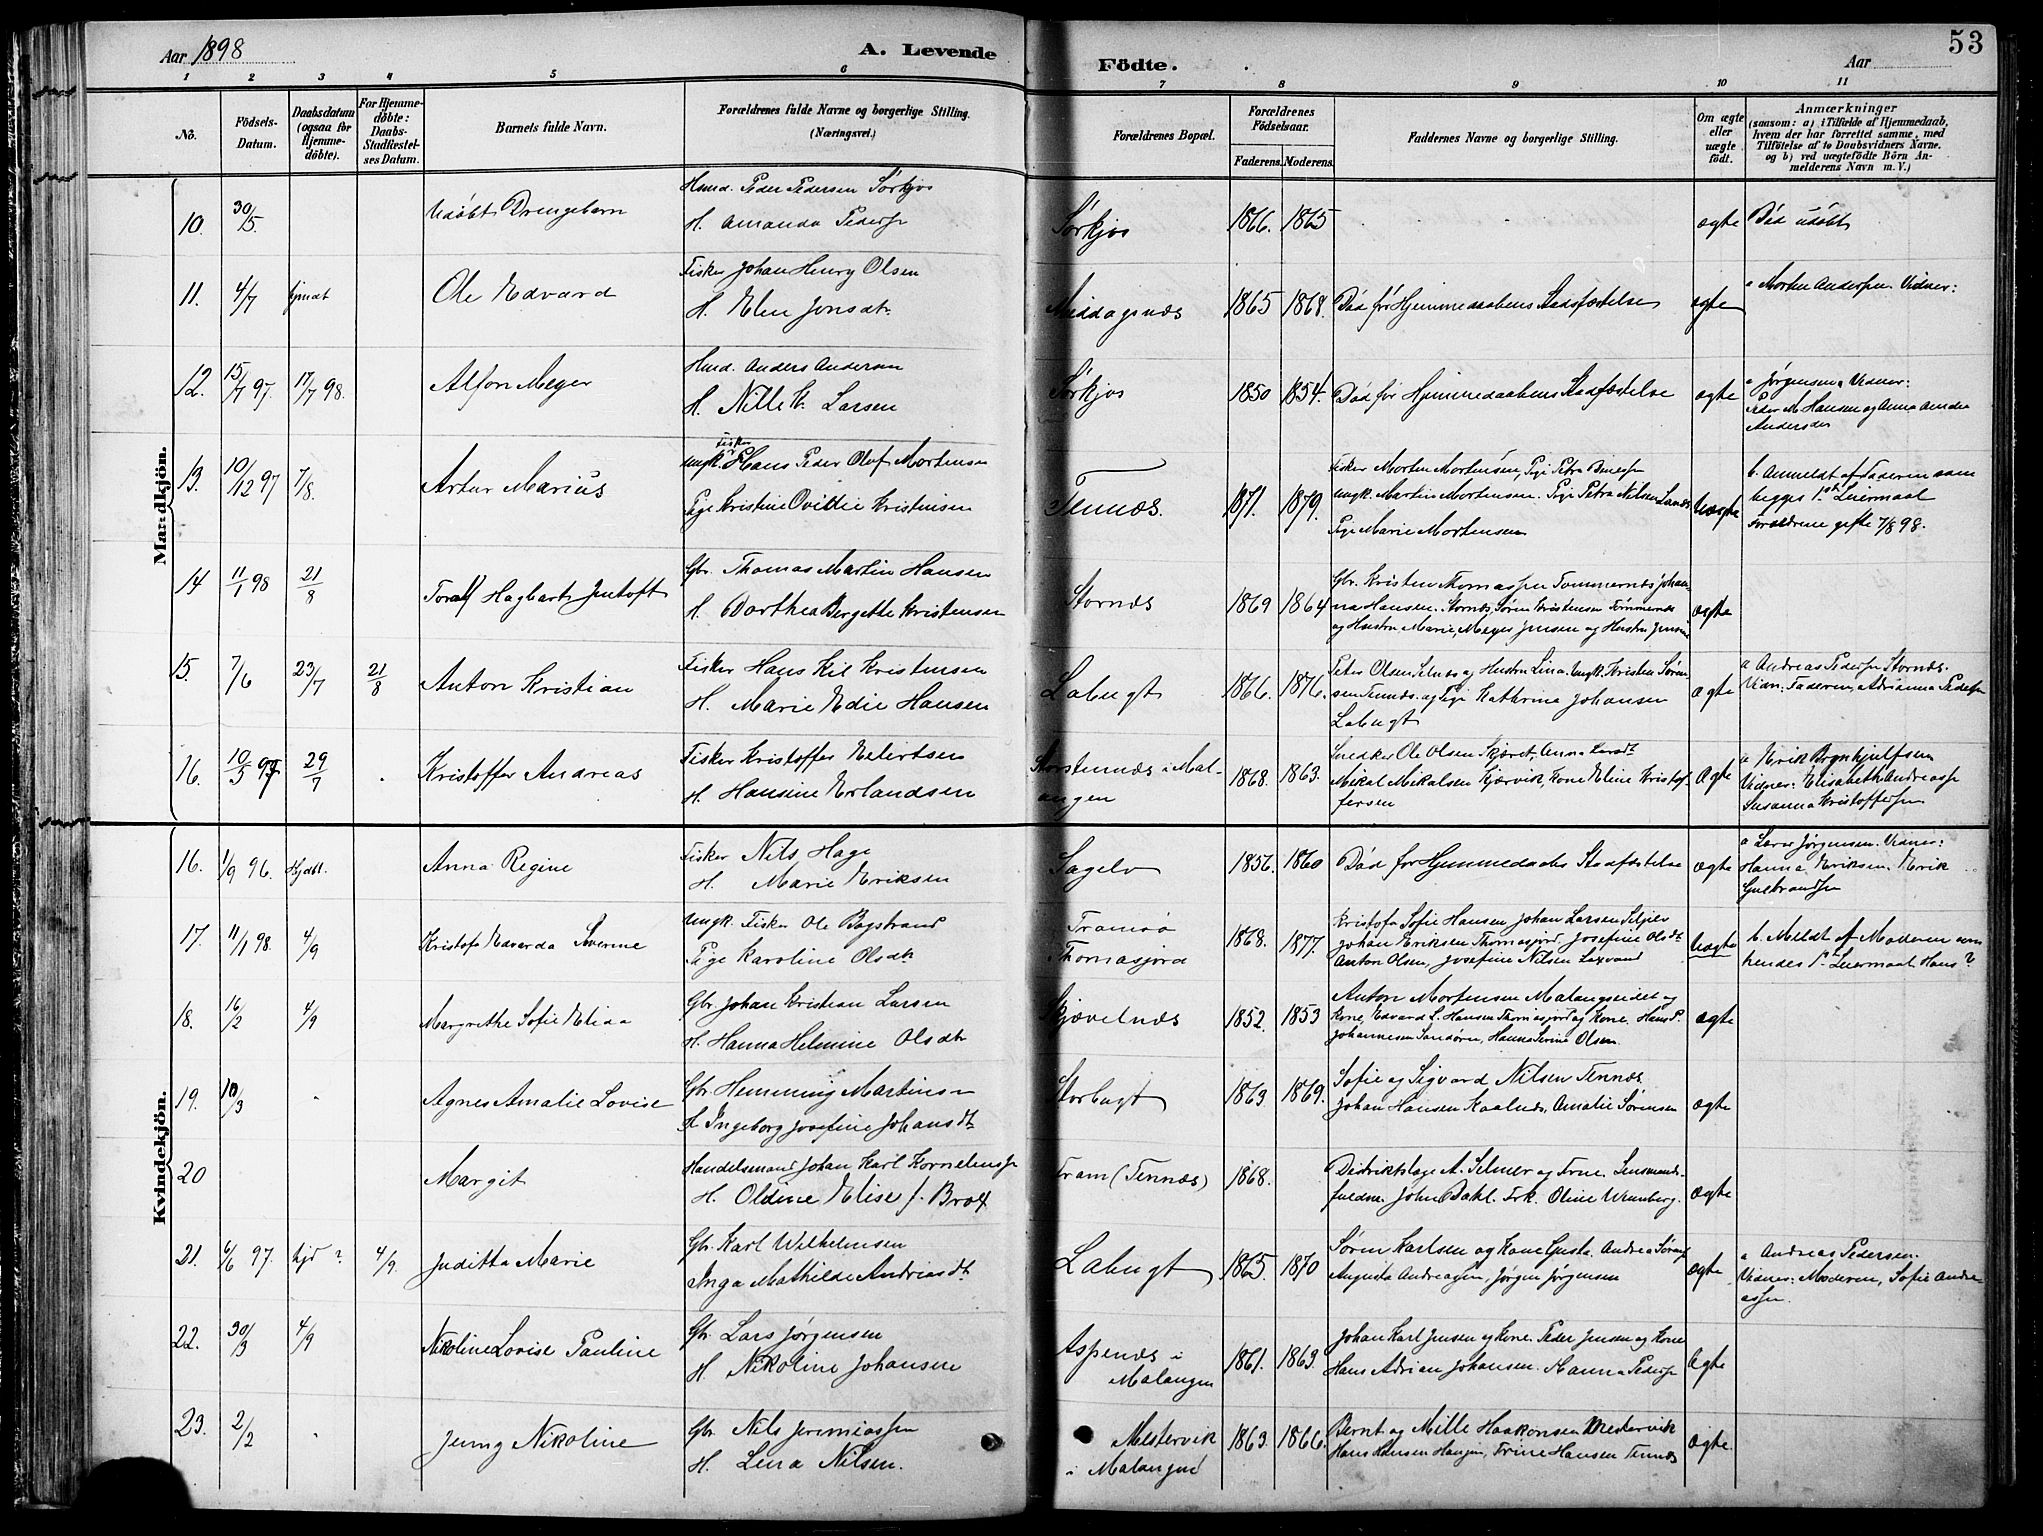 53
Aar 1898
A. Levende
Födte.
Aar
1 2 3 4 5 6 7 8 9 10 11
No.
Födsels-
Datum.
Daabsdatum
(ogsaa for
Hjemme-
döbte).
For Hjemme-
döbte:
Daabs-
Stadfæstel-
ses Datum.
Barnets fulde Navn.
Forældrenes fulde Navne og borgerlige Stilling.
(Næringsvei.)
Forældrenes Bopæl.
Forældrenes
Födselsaar.
Faderens. Moderens.
Faddernes Navne og borgerlige Stilling.
Om ægte
eller
uægte
födt.
Anmærkninger
(saasom: a) i Tilfælde af Hjemmedaab,
hvem der har forrettet samme, med
Tilföielse af to Daabsvidners Navne.
og b) ved uægtefödte Börn An-
melderens Navn m. V.)
Mandkjön.
10. 30/5. Udöbt Drengebarn
Hmd. Peder Pedersen Sørkjos
H. Amanda Peders
Sørkjos 1866. 1865 ægte Död udöbt
11. 4/7 hjmdt Ole Edvard
Fisker Johan Henry Olsen
H. Elen Jonsdt.
Middagsnæs 1865 1868. Död för Hjemmedaabens Stadfæstelse ægte
a Morten Anderssen Vidner:
12. 15/7 97. 17/7 98. Alfon Meyer
Hmd. Anders Andersen
H. Nille K. Larsen
Sørkjos 1850 1854. Död för Hjemmedaabens Stadfæstelse ægte
a Jørgensen Vidner:
Peder M. Hansen og Anna Amdea
Andersdt
13. 10/12 97 7/8. Artur Marius
Ungk. Fisker Hans Peder Olof Mortensen
Pige Kristine Ovidie Kristensen
Tennæs. 1871. 1879.
Fisker Morten Mortensen, Pige Petra
Ungk. Martin Mortensen. Pige Petra Nilsen
Pige Marie Mortensen
Uægte
b. Anmeldt af Faderen som
begges 1ste Leiermaal
Forældrene gifte 7/8 98.
14 11/1 98 21/8 Toralf Hagbart Jentoft
Gbr. Thomas Martin Hansen
H. Dorthea Bergette Kristensen
Stornæs 1869 1864
Gbr. Kristen Thomassen Tømmernæs Johan-
na Hansen. Stornæs, Søren Kristensen Tømmernæs
og Hustru Marie Meyer Jensen og Hustru Jensine
ægte
15. 7/6 23/7 21/8 Anton Kristian
Fisker Hans Kil Kristensen
H. Marie Edie Hansen
Labugt 1866. 1876.
Peter Olsen Selnæs og Hustru Lina. Ungk. Kristen Søren-
sen Tennæs. og Pige Kathrina Johansen
Labugt
ægte
a Andreas Peders Stornæs.
Vidn. Faderen, Adrianna Peders
16. 10/5 97 29/7 Kristoffer Andreas
Fisker Kristoffer Eilertsen
H. Hansine Erlandsen
Storstennæs i Mal-
angen 1868. 1863.
Snedker Ole Olsen Skjæret, Anna Larsdt
Mikal Mikalsen Kjærvik, Kone Eline Kristof-
fersen
Ægte
a Erik Brynhjulfsen
Vidner: Elisabeth Andreass
Susanna Kristoffers
Kvindekjön.
16. 1/9 96. Hjdbt. Anna Regine
Fisker Nils Hage
H. Marie Eriksen
Sagelv 1856. 1860 Död for Hjemmedaabs Stadfæstelse ægte
a Lars Jørgensen. Vidner:
Hanna Eriksen. Erik
Gulbrands
17. 11/1 98. 4/9 Kristofa Edvarda Severine
Ungk. Fisker Ole Bogstrand
Pige Karoline Olsdt.
Tromsø
Thomasjord 1868. 1877.
Kristofa Sofie Hansen, Johan Larsen Seljelv
Johan Eriksen Thomasjord, Josefine Olsdt.
Anton Olsen, Josefine Nilsen Laxvand
Uægte
b. Meldt af Moderen som
hendes 1ste Leiermaal Hans?
18. 16/2 4/9 Margrethe Sofie Elida
Gbr. Johan Kristian Larsen
H. Hanna Helmine Olsdt.
Skjævelnæs 1852. 1853
Anton Mortensen Malangseidet og
Kone, Edvard L. Hansen Thomasjord og Kone. Hans P.
Johannesen Sandøren, Hanna Sevine Olsen.
ægte
19. 10/3 " Agnes Amalie Lovise
Gbr. Hemming Martinsen
H. Ingeborg Josefine Johansdt.
Storbugt 1863. 1869.
Sofie og Sigvard Nilsen Tennæs
Johan Hansen Kaalnæs, Amalie Sørensen
ægte
20 Margit
Handelsmand Johan Karl Kornelius
H. Oldine Elise f. Brox
Fram (Tennæs) 1868.
Distriktslæge A. Selmer og Frue. Lensmands-
fuldm. John Dahl. Frk. Oline Wennberg.
ægte
21. 6/6 97. hjd ? 4/9. Juditta Marie
Gbr. Karl Wilhelmsen
Inga Mathilde Andreasdt.
Labugt 1865. 1870
Søren Karlsen og Kone Gusta. Andrea Sørens
Augusta Andreasen, Jørgen Jørgensen
ægte
a Andreas Pedersen.
Vidner: Moderen, Sofie Andre-
ass
22. 30/3 4/9 Nikoline Lovise Pauline
Gbr. Lars Jørgensen
H. Nikoline Johansen
Aspenæs i
Malangen 1861. 1863.
Johan Karl Jensen og Kone. Peder Jensen og Kone
Hans Adrian Johansen. Hanna Peders
Ægte
23. 2/2 " Jenny Nikoline
Gbr. Nils Jeremiassen
H. Lina Nilsen.
Mestervik
i Malangen 1863. 1866.
Bernt og Mille Haakonsen Mestervik
Hans Hansen Haugen, Trine Hansen Tennæs
ægte.